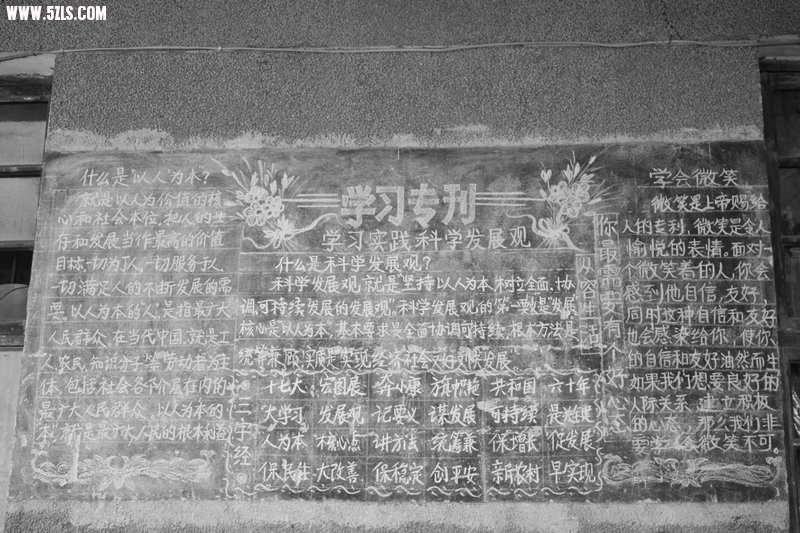 WWW.5ZLS.COM
什么是"以人为本"?
就是以人为价值的核
心和社会本位,把人的生
存和发展当作最高的价值
目标,一切为了人,一切服务于人
一切满足人的不断发展的需
要。以人为本的"人"是指最广大
人民群众。在当代中国,就是工
人、农民、知识分子等劳动者为主
体,包括社会各阶层在内的
最广大人民群众。以人为本的
"本",就是最广大人民的根本利益
学习专刊
学习实践科学发展观
什么是科学发展观?
科学发展观,就是"坚持以人为本,树立全面、协
调,可持续发展的发展观","科学发展观,的第一要是发展
核心是以人为本",基本要求是全面协调可持续,根本方法是
统筹兼顾,实质是实现经济社会又好又快发展。
三字经
十七大 宏图展 奔小康 旗帜艳 共和国 六十年
大学习 发展观 记要义 谋发展 可持续 是关键
人为本 核心点 讲方法 统筹兼 保增长 促发展
保民生 大改善 保稳定 创平安 新农村 早实现
从容生活
你最需要有个好心态
学会微笑
微笑是上帝赐给
人的专利,微笑是令人
愉悦的表情。面对一
个微笑着的人,你会
感到他自信、友好,
同时这种自信和友好
也会感染给你,使你
的自信和友好油然而生
如果我们想要良好的
人际关系,建立积极
的心态,那么我们非
要学会微笑不可。